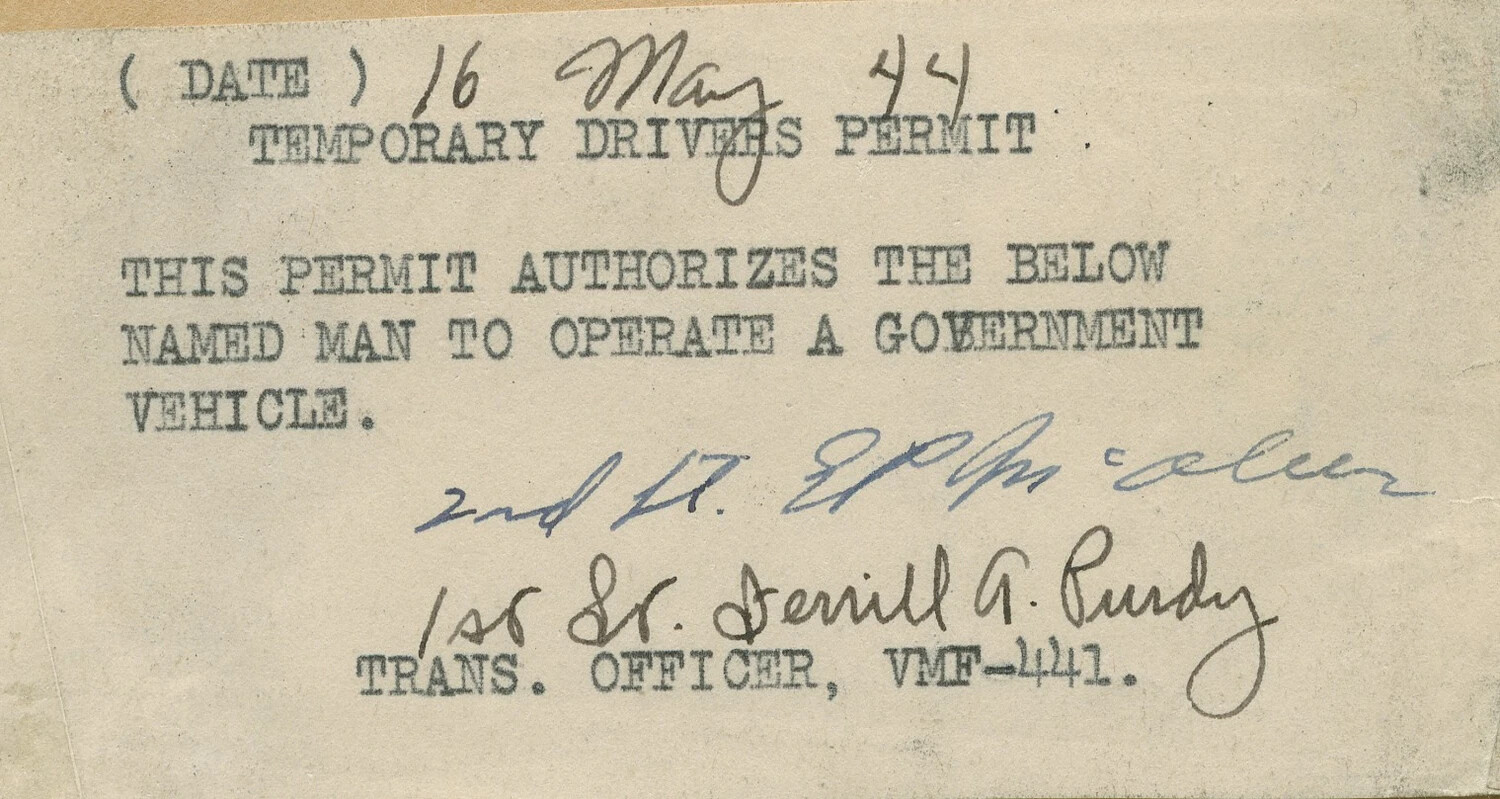 ( DATE ) 16 May 44
TEMPORARY DRIVERS PERMIT
THIS PERMIT AUTHORIZES THE BELOW
NAMED MAN TO OPERATE A GOVERNMENT
VEHICLE.
2nd Lt. EP
1st Lt. Derrill A. Purdy
TRANS. OFFICER, VMF-441.